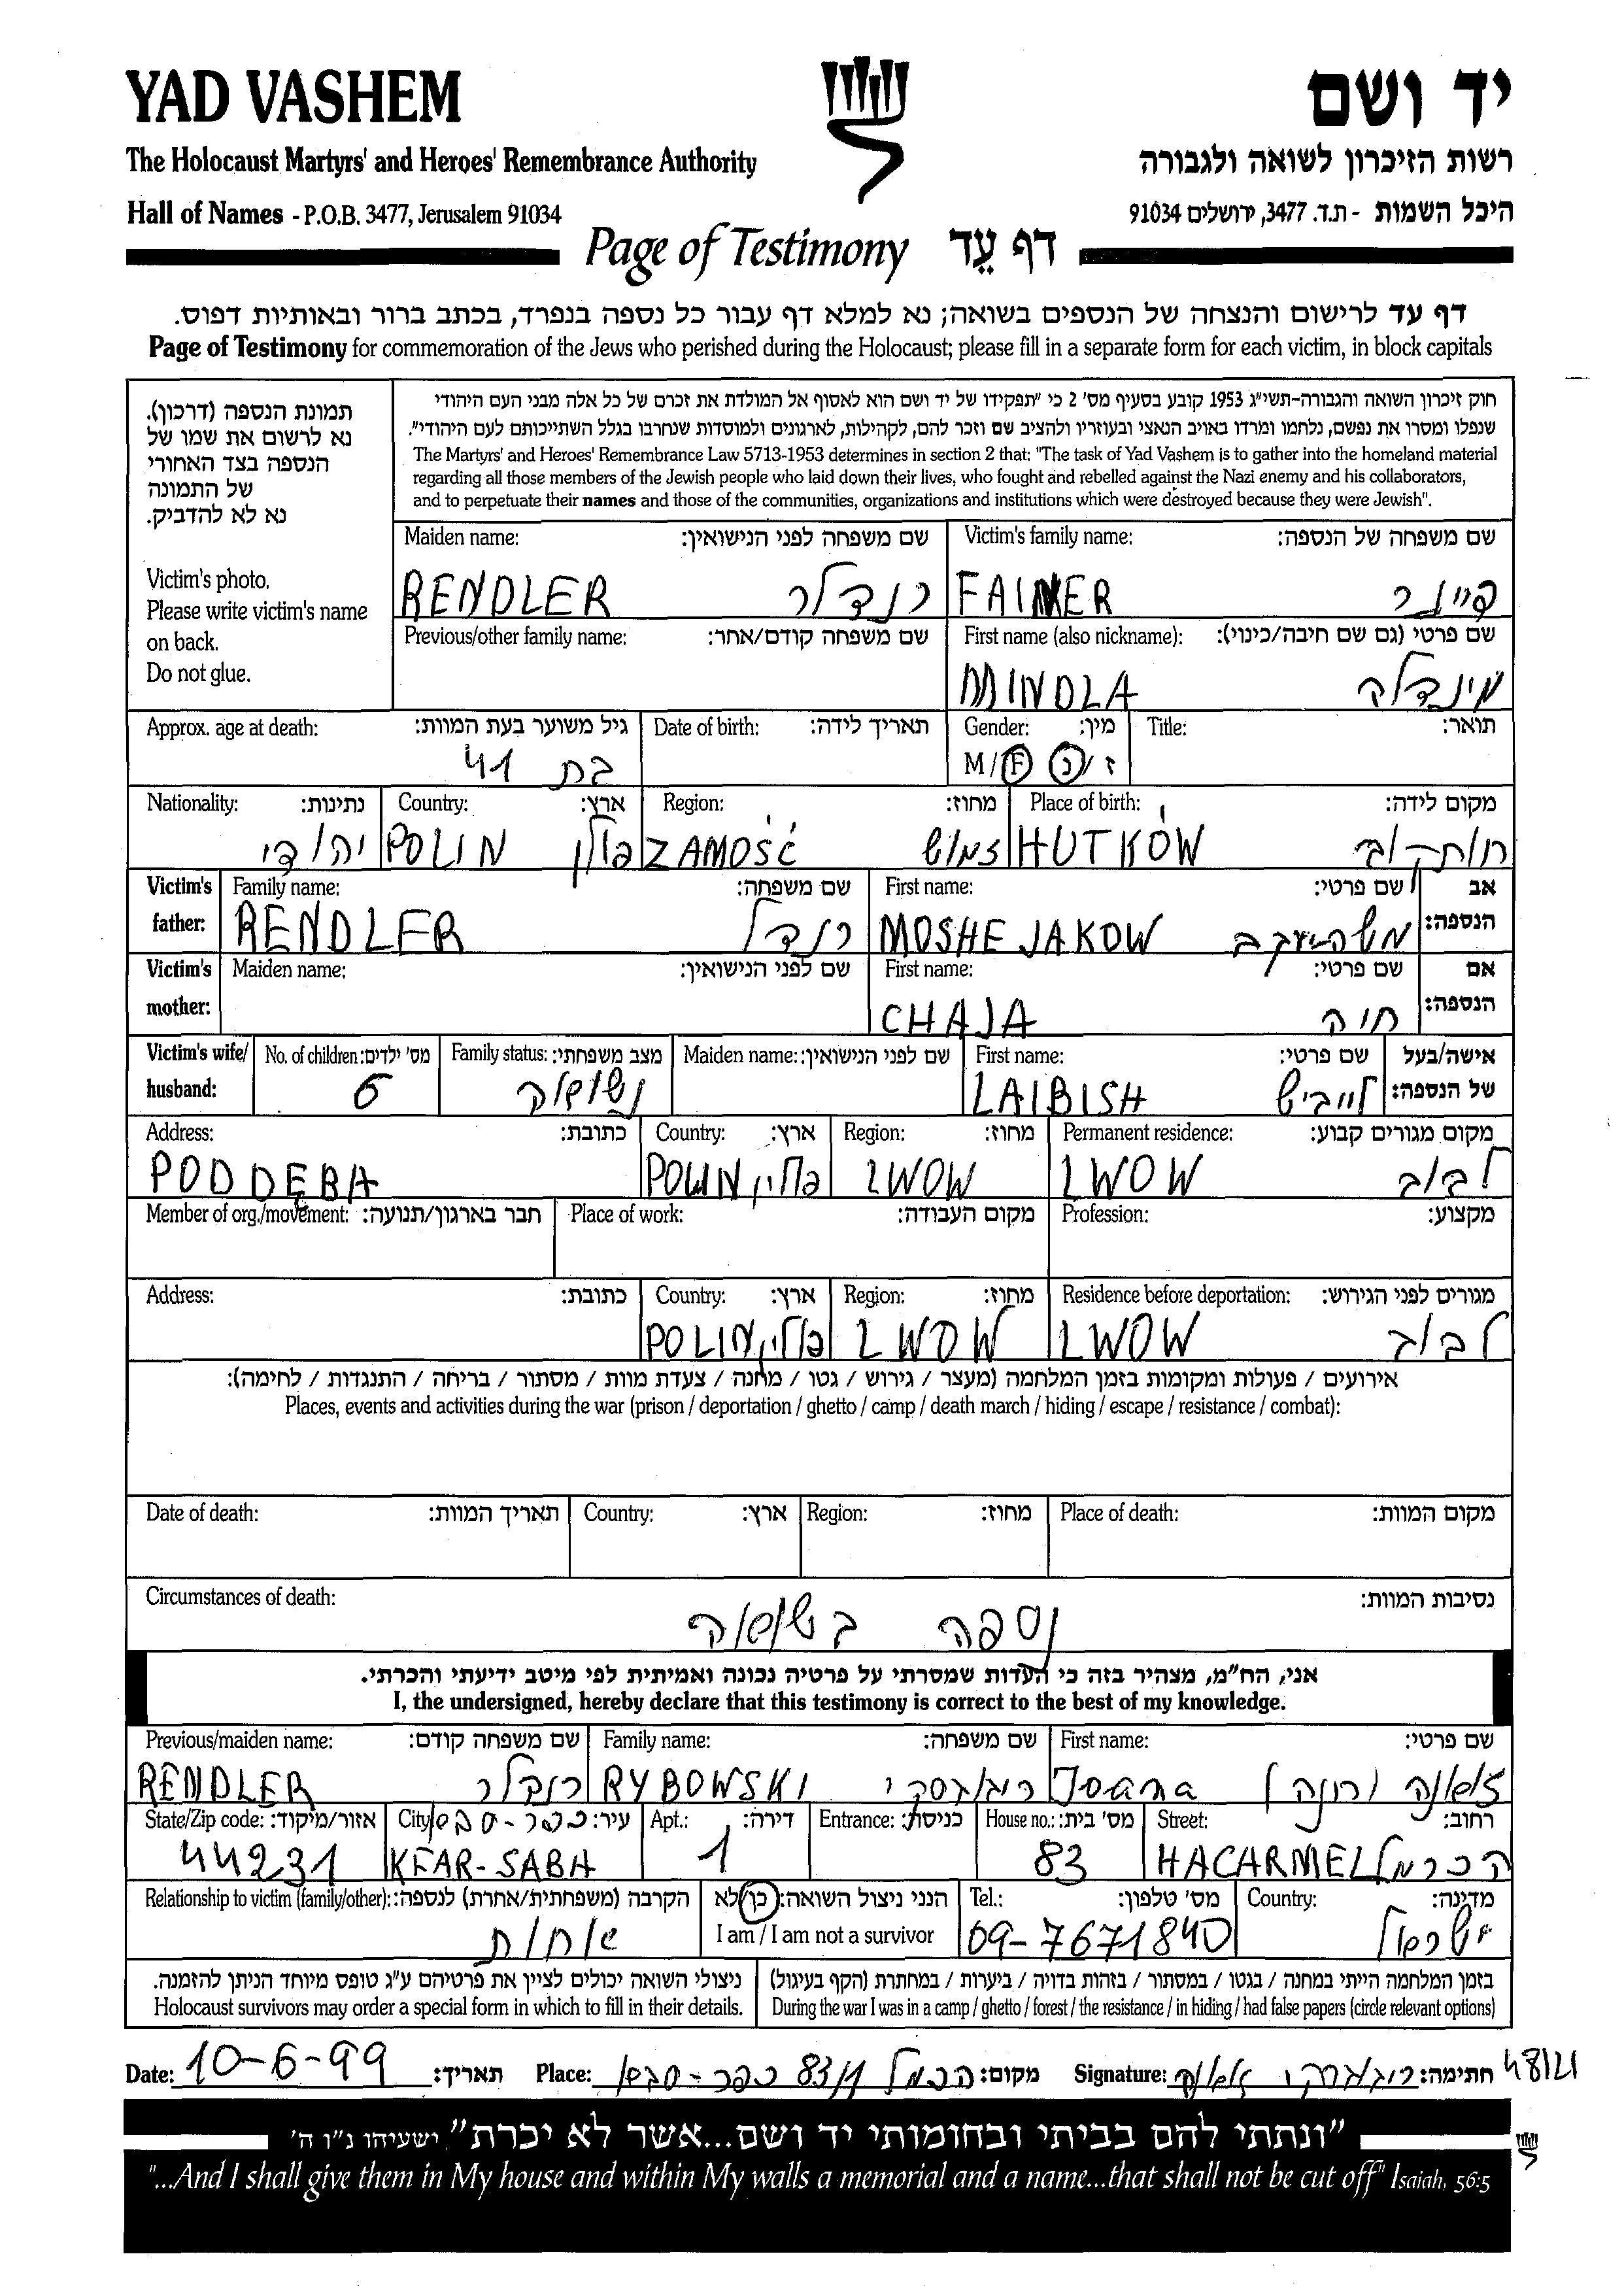 YAD VASHEM
יד ושם
The Holocaust Martyrs' and Heroes' Remembrance Authority
רשות הזיכרון לשואה ולגבורה
Hall of Names - P.O.B. 3477, Jerusalem 91034
היכל השמות - ת.ד. 3477, ירושלים 91034
Page of Testimony דף עֵד
דף עד לרישום והנצחה של הנספים בשואה; נא למלא דף עבור כל נספה בנפרד, בכתב ברור ובאותיות דפוס.
Page of Testimony for commemoration of the Jews who perished during the Holocaust; please fill in a separate form for each victim, in block capitals
תמונת הנספה (דרכון).
נא לרשום את שמו של
הנספה בצד האחורי
של התמונה
נא לא להדביק.
Victim's photo.
Please write victim's name
on back.
Do not glue.
חוק זיכרון השואה והגבורה-תשי"ג 1953 קובע בסעיף מס' 2 כי "תפקידו של יד ושם הוא לאסוף אל המולדת את זכרם של כל אלה מבני העם היהודי
שנפלו ומסרו את נפשם, נלחמו ומרדו באויב הנאצי ובעוזריו ולהציב שם וזכר להם, לקהילות, לארגונים ולמוסדות שנחרבו בגלל השתייכותם לעם היהודי".
The Martyrs' and Heroes' Remembrance Law 5713-1953 determines in section 2 that: "The task of Yad Vashem is to gather into the homeland material
regarding all those members of the Jewish people who laid down their lives, who fought and rebelled against the Nazi enemy and his collaborators,
and to perpetuate their names and those of the communities, organizations and institutions which were destroyed because they were Jewish".
Maiden name: שם משפחה לפני הנישואין: Victim's family name: שם משפחה של הנספה:
RENDLER רנדלר FAINER פיינר
Previous/other family name: שם משפחה קודם/אחר: First name (also nickname): שם פרטי (גם שם חיבה/כינוי):
MINDLA מינדלה
Approx. age at death: גיל משוער בעת המוות: Date of birth: תאריך לידה: Gender: מין: Title: תואר:
בת 41 M/F ז/נ
Nationality: נתינות: Country: ארץ: Region: מחוז: Place of birth: מקום לידה:
יהודי POLIN פולין ZAMOŚĆ זמושץ HUTKÓW חוטקוב
Victim's father: Family name: שם משפחה: First name: שם פרטי: אב הנספה:
RENDLER רנדל MOSHE JAKOW משה יעקב
Victim's mother: Maiden name: שם לפני הנישואין: First name: שם פרטי: אם הנספה:
CHAJA חיה
Victim's wife/ husband: No. of children: מס' ילדים: Family status: מצב משפחתי: Maiden name: שם לפני הנישואין: First name: שם פרטי: אישה/בעל של הנספה:
6 נשואה LAIBISH לייביש
Address: כתובת: Country: ארץ: Region: מחוז: Permanent residence: מקום מגורים קבוע:
POD DEBA POLIN פולין LWOW LWOW לבוב
Member of org./movement: חבר בארגון/תנועה: Place of work: מקום העבודה: Profession: מקצוע:
Address: כתובת: Country: ארץ: Region: מחוז: Residence before deportation: מגורים לפני הגירוש:
POLIN פולין LWOW LWOW לבוב
אירועים / פעולות ומקומות בזמן המלחמה (מעצר / גירוש / גטו / מחנה / צעדת מוות / מסתור / בריחה / התנגדות / לחימה):
Places, events and activities during the war (prison / deportation / ghetto / camp / death march / hiding / escape / resistance / combat):
Date of death: תאריך המוות: Country: ארץ: Region: מחוז: Place of death: מקום המוות:
Circumstances of death: נסיבות המוות:
נספה בשואה
אני, הח"מ, מצהיר בזה כי העדות שמסרתי על פרטיה נכונה ואמיתית לפי מיטב ידיעתי והכרתי.
I, the undersigned, hereby declare that this testimony is correct to the best of my knowledge.
Previous/maiden name: שם משפחה קודם: Family name: שם משפחה: First name: שם פרטי:
RENDLER רנדלר RYBOWSKI ריבובסקי Joana
State/Zip code: אזור/מיקוד: City: עיר: כפר-סבא Apt.: דירה: Entrance: כניסה: House no.: מס' בית: Street: רחוב:
44231 KFAR-SABA 1 83 HACARMEL הכרמל
Relationship to victim (family/other): הקרבה (משפחתית/אחרת) לנספה: הנני ניצול השואה: כן/לא Tel.: מס' טלפון: Country: מדינה:
אחות I am / I am not a survivor 09-7671840 ישראל
ניצולי השואה יכולים לציין את פרטיהם ע"ג טופס מיוחד הניתן להזמנה.
Holocaust survivors may order a special form in which to fill in their details.
בזמן המלחמה הייתי במחנה / בגטו / במסתור / בזהות בדויה / ביערות / במחתרת (הקף בעיגול)
During the war I was in a camp / ghetto / forest / the resistance / in hiding / had false papers (circle relevant options)
Date: 10-6-99 תאריך: Place: הכרמל 83/1 כפר-סבא מקום: Signature: חתימה:
"ונתתי להם בביתי ובחומותי יד ושם...אשר לא יכרת" ישעיהו נ"ו ה'
"...And I shall give them in My house and within My walls a memorial and a name...that shall not be cut off" Isaiah, 56:5